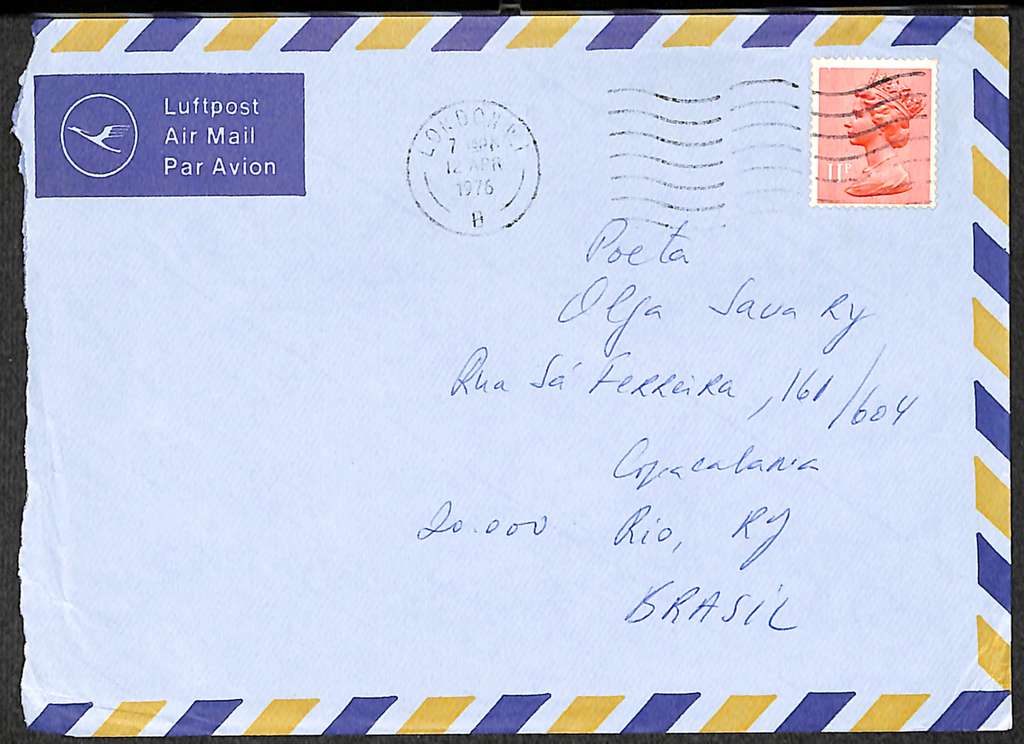 Luftpost
Air Mail
Par Avion
LONDON
7
12 APR
1976
11P
Poeta
Olga Savary
Rua Sá Ferreira, 161/604
Copacabana
20.000 Rio, RJ
BRASIL